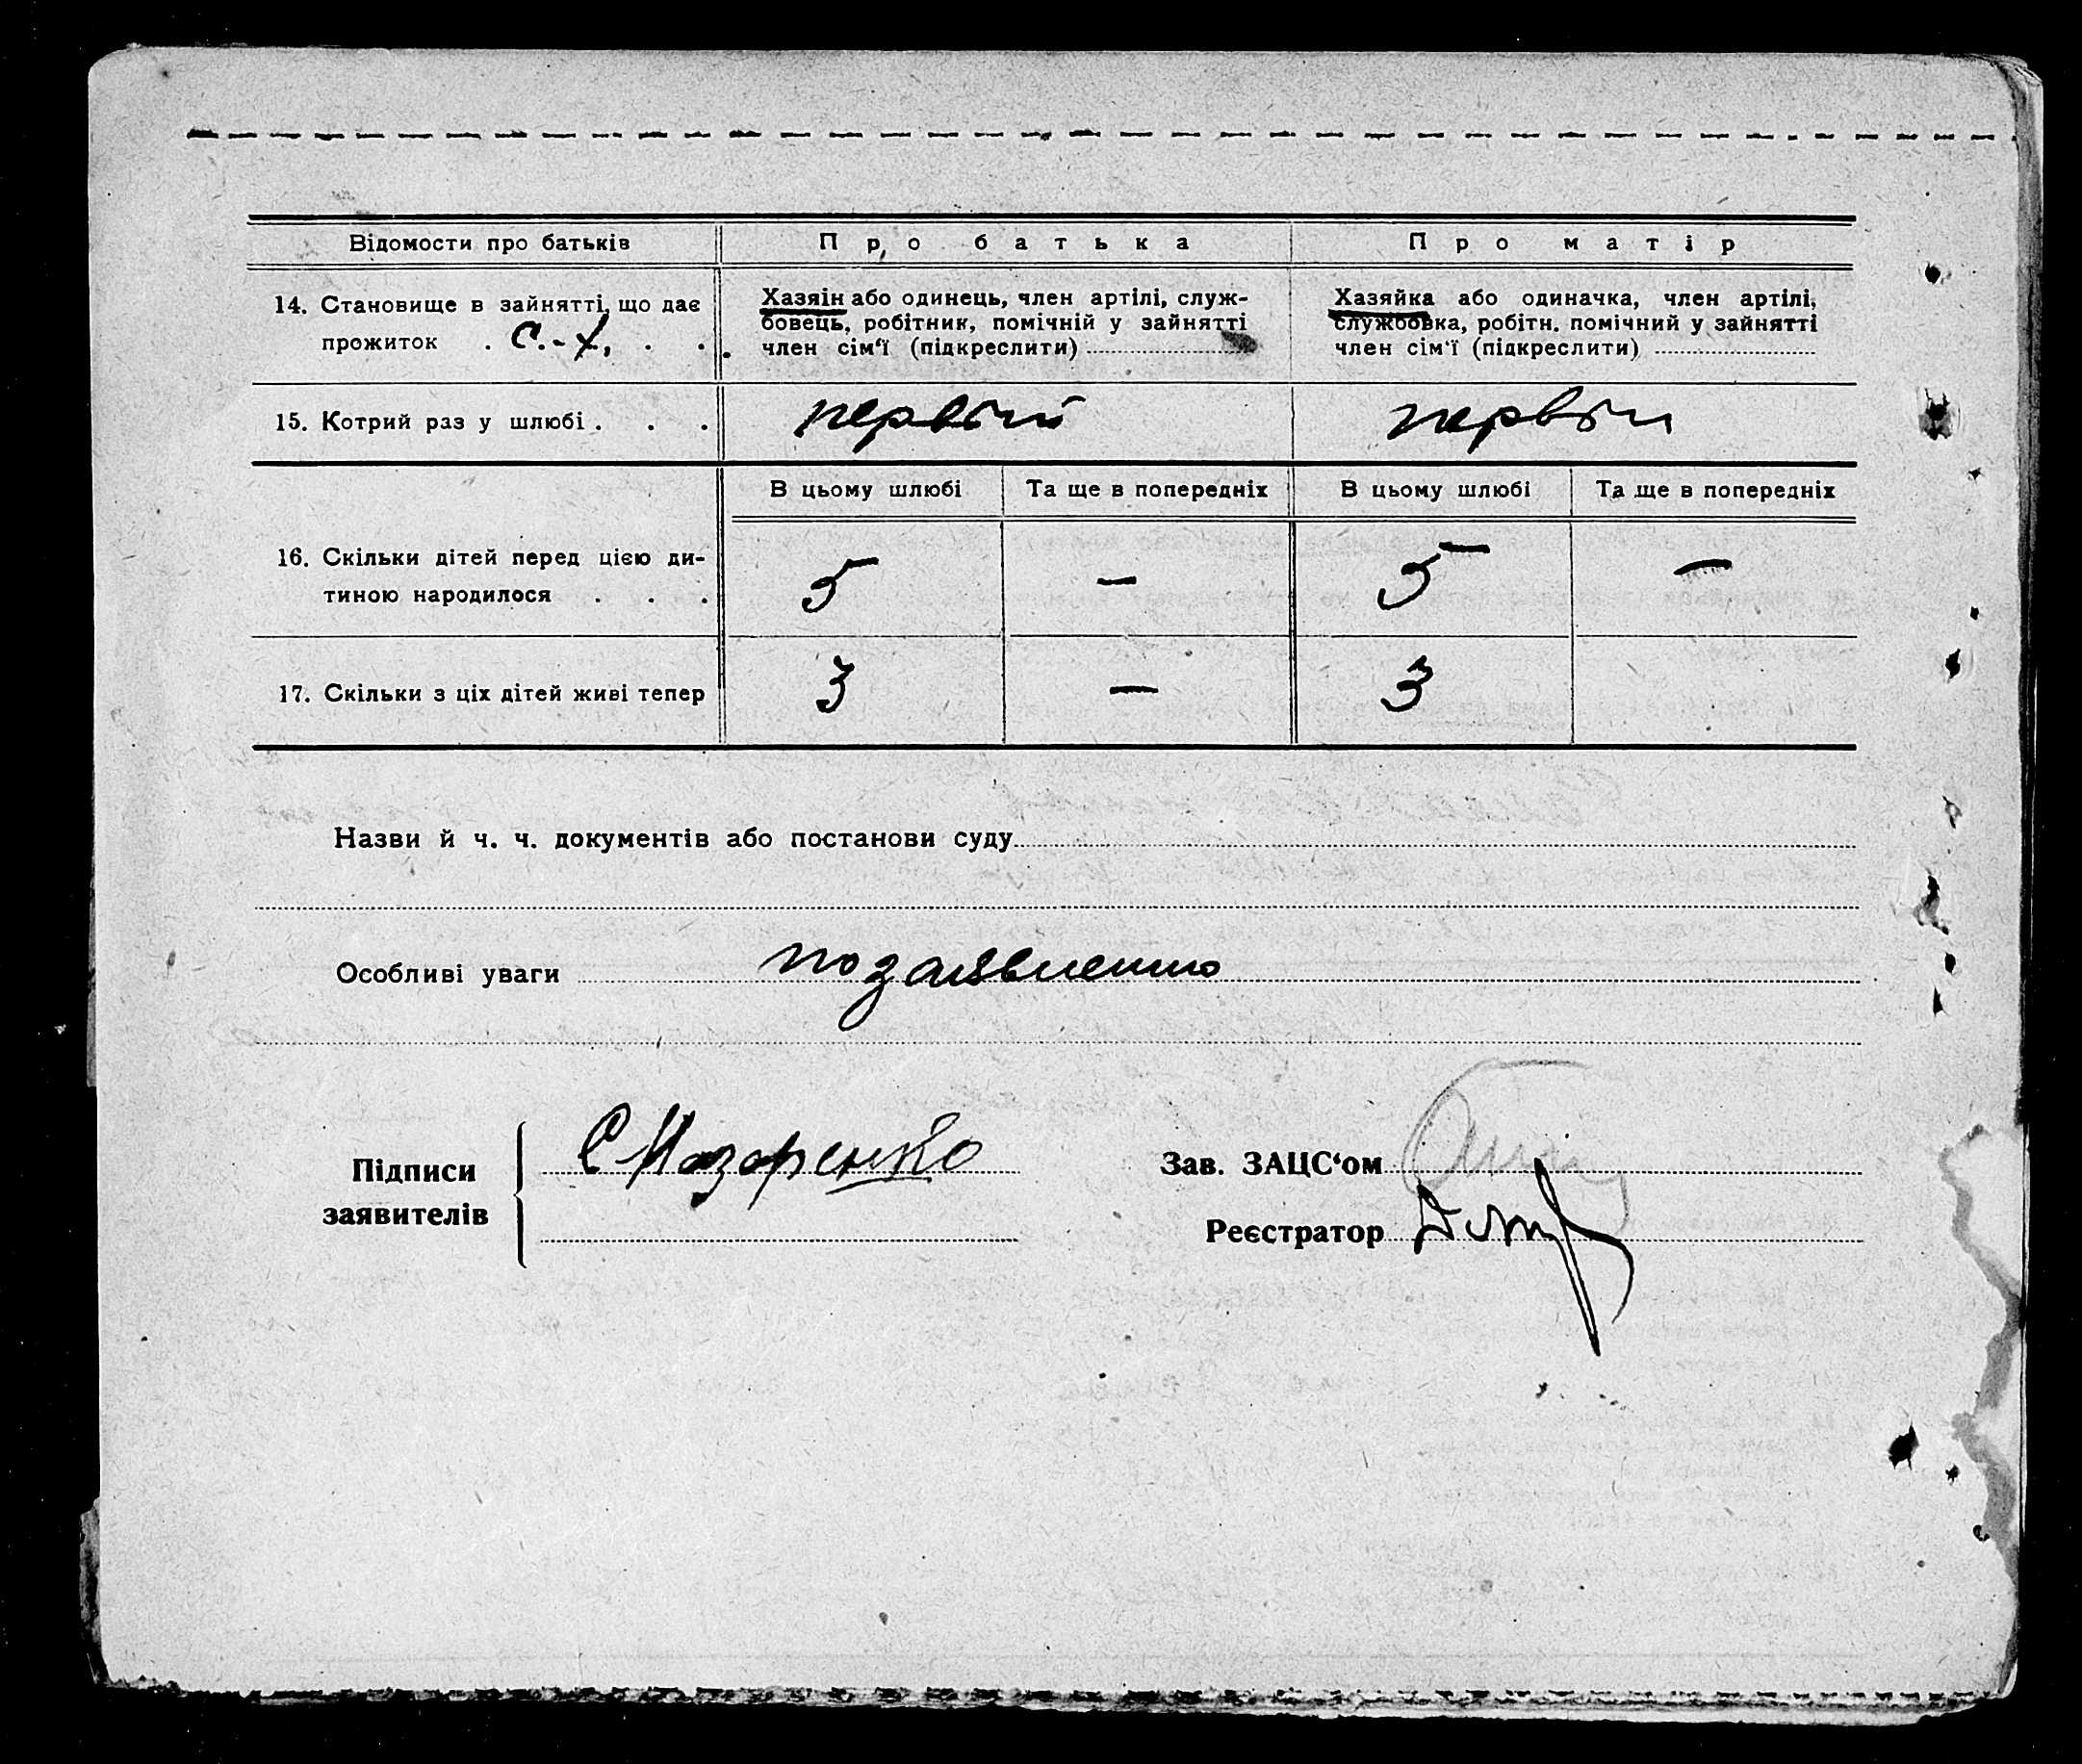 Відомости про батьків Про батька Про матір
14. Становище в зайнятті, що дає
прожиток . с.-х. . .
Хазяін або одинець, член артілі, служ-
бовець, робітник, помічній у зайнятті
член сім'ї (підкреслити)
Хазяйка або одиначка, член артілі,
службовка, робітн. помічний у зайнятті
член сім'ї (підкреслити)
15. Котрий раз у шлюбі . . . первый первый
В цьому шлюбі Та ще в попередніх В цьому шлюбі Та ще в попередніх
16. Скільки дітей перед цією ди-
тиною народилося . . . 5 — 5 —
17. Скільки з ціх дітей живі тепер 3 — 3
Назви й ч. ч. документів або постанови суду
Особливі уваги по заявлению
Підписи
заявителів
С Назаренко
Зав. ЗАЦС'ом
Реєстратор